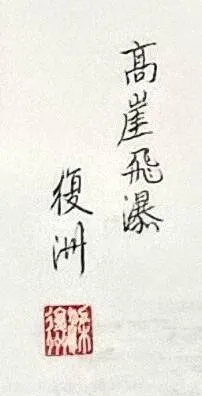 高崖飛瀑
復洲